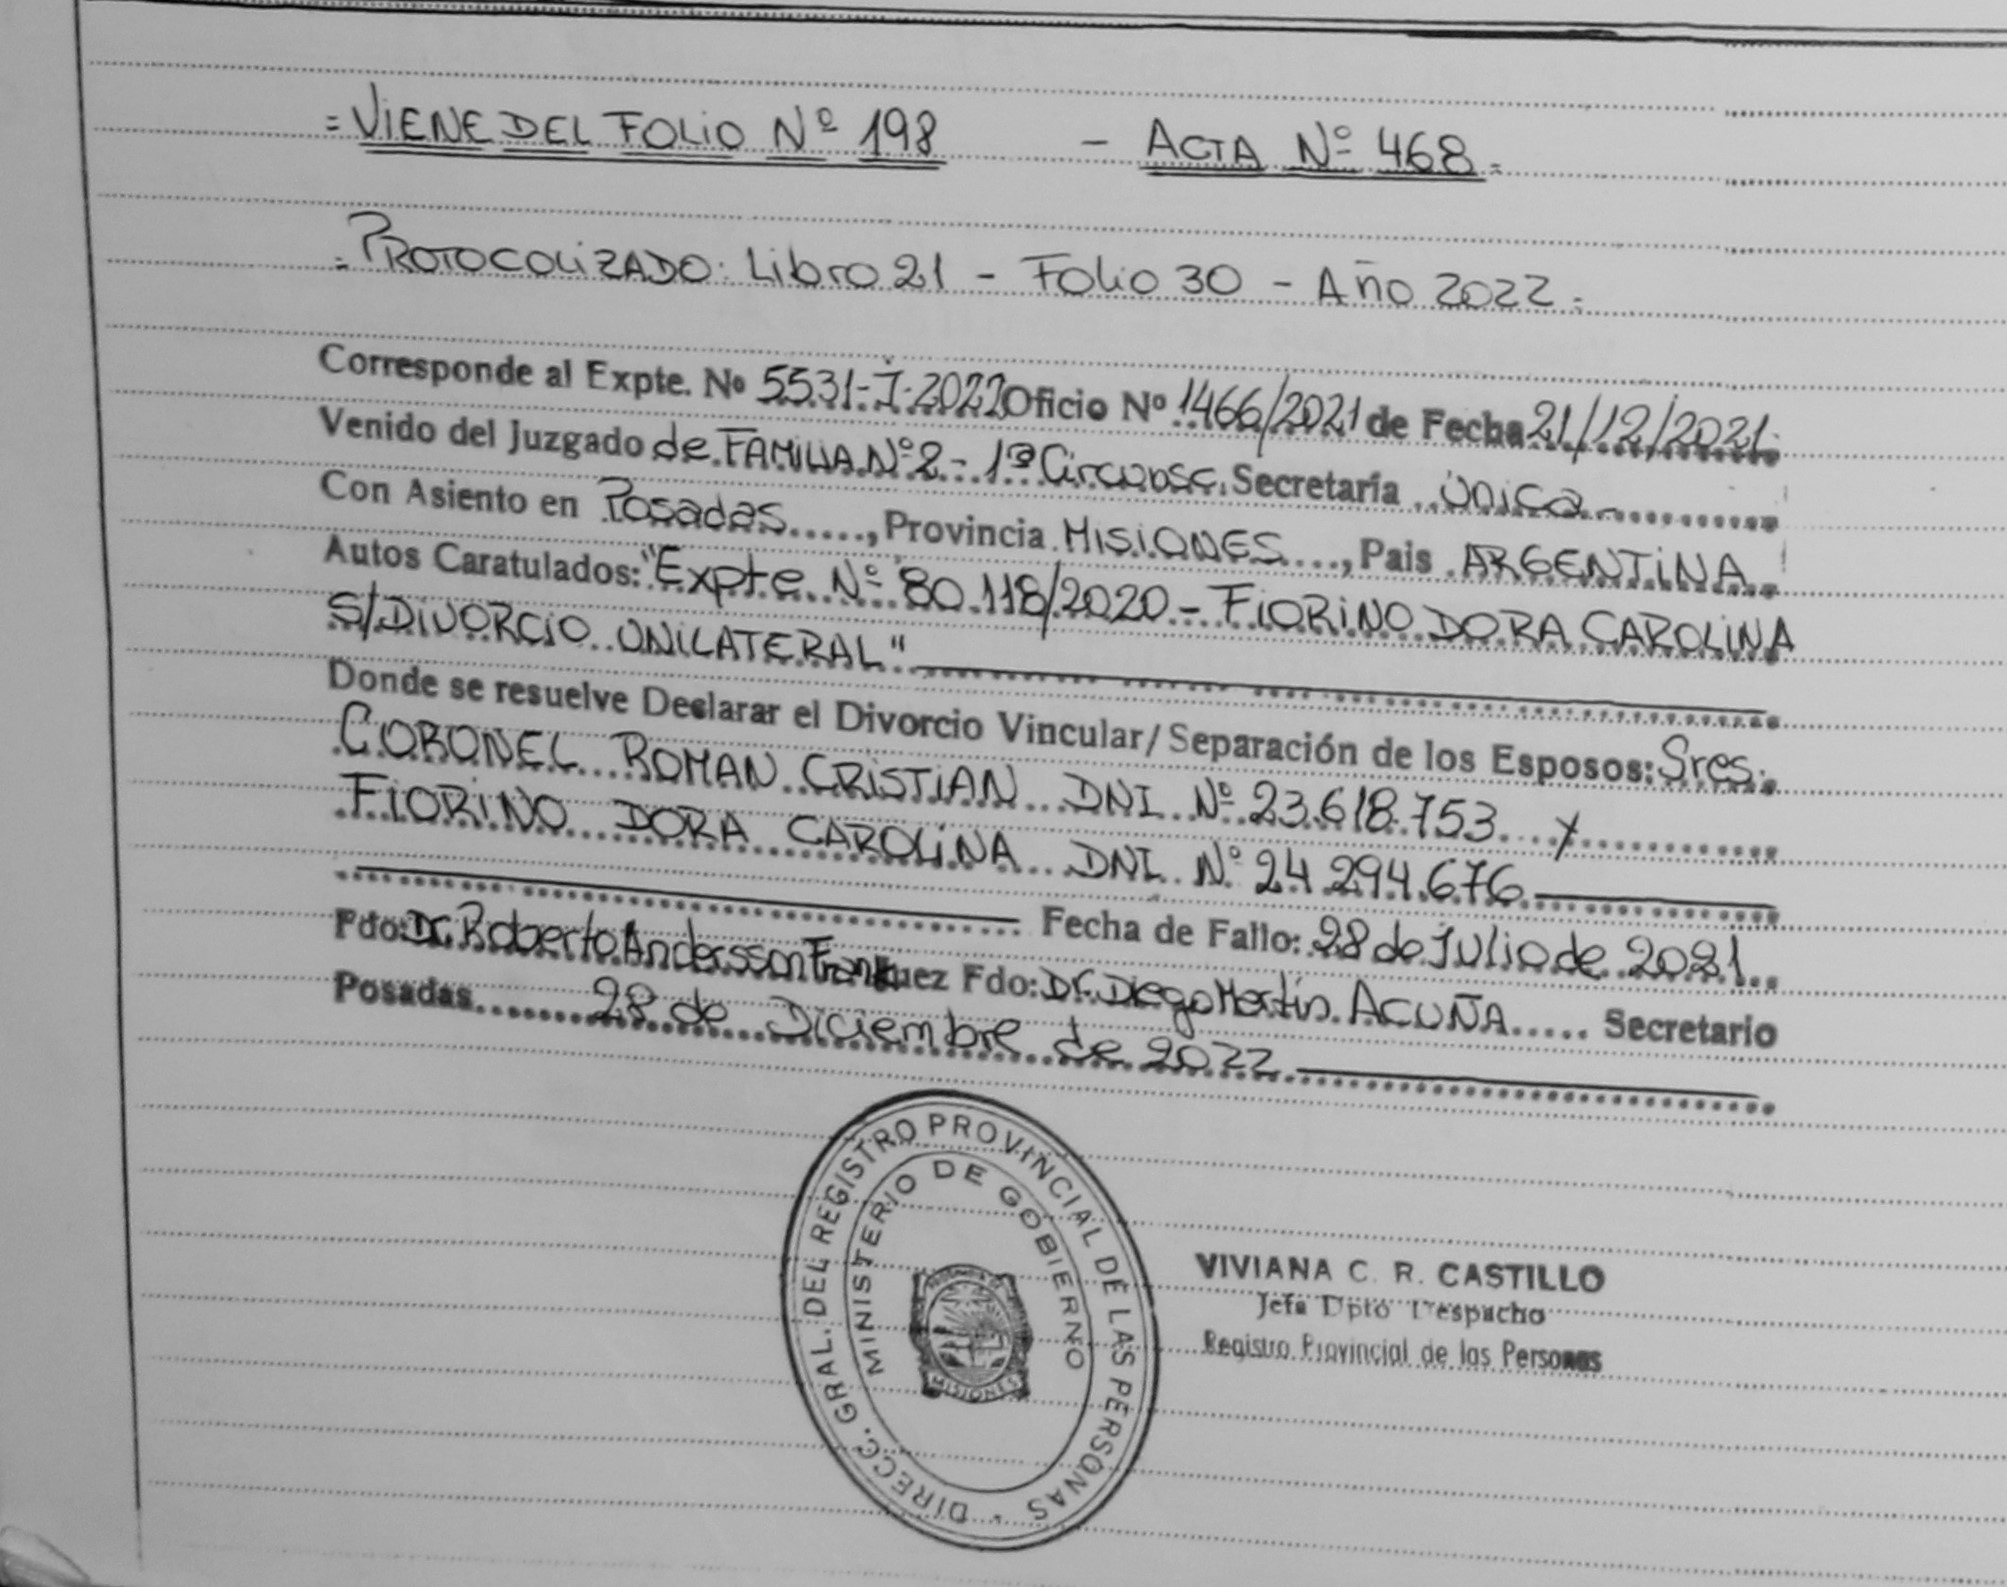 =VIENE DEL FOLIO Nº 198 - ACTA Nº 468=
=PROTOCOLIZADO: Libro 21 - Folio 30 - Año 2022=
Corresponde al Expte. Nº 5531-I-2022 Oficio Nº 1466/2021 de Fecha 21/12/2021.
Venido del Juzgado de FAMILIA Nº 2 - 1ª Circunsc. Secretaría Única
Con Asiento en Posadas....., Provincia MISIONES...., Pais ARGENTINA
Autos Caratulados: "Expte Nº 80.118/2020 - FIORINO DORA CAROLINA
S/DIVORCIO UNILATERAL"
Donde se resuelve Declarar el Divorcio Vincular/Separación de los Esposos: Sres.
CORONEL ROMAN CRISTIAN DNI Nº 23.618.753 y
FIORINO DORA CAROLINA DNI Nº 24.294.676
Fecha de Fallo: 28 de Julio de 2021
Fdo: Dr. Roberto Andersson Frank Juez Fdo: Dr. Diego Martín ACUÑA..... Secretario
Posadas 28 de Diciembre de 2022
DIRECC. GRAL. DEL REGISTRO PROVINCIAL DE LAS PERSONAS
MINISTERIO DE GOBIERNO
MISIONES
VIVIANA C. R. CASTILLO
Jefa Dpto Despacho
Registro Provincial de las Personas